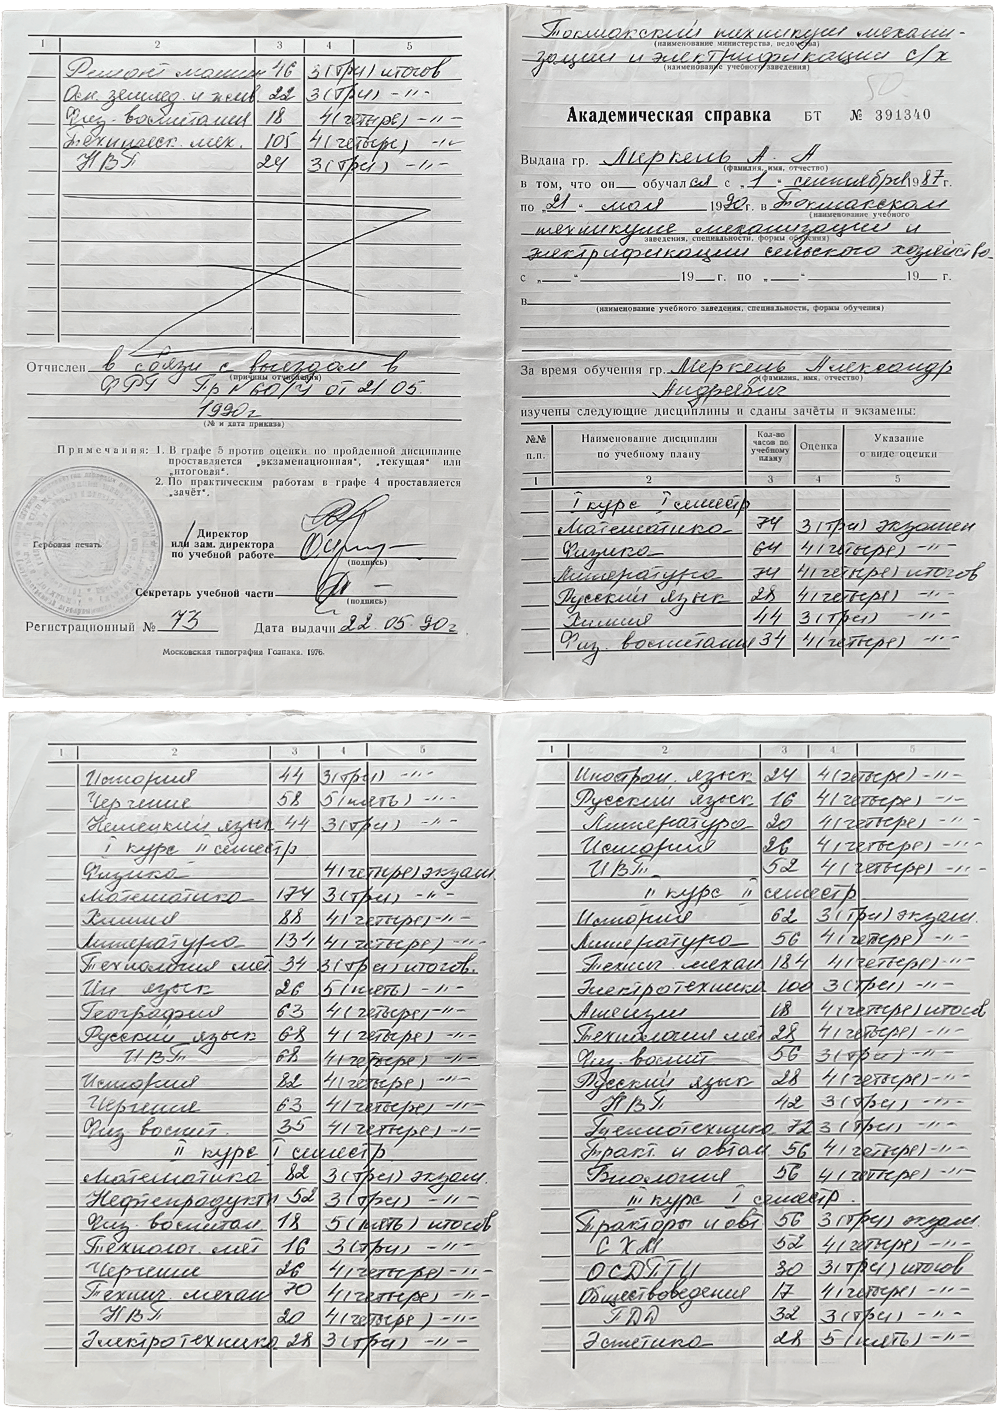 1 2 3 4 5
Ремонт машин 46 3 (три) итогов
Осн. землед. и жив. 22 3 (три) -"-
Физ. воспитания 18 4 (четыре) -"-
Техническ. мех. 105 4 (четыре) -"-
НВП 24 3 (три) -"-
Отчислен в связи с выездом в
(причины отчисления)
ФРГ Пр № 60/У от 21 05.
1990г
(№ и дата приказа)
Примечания: 1. В графе 5 против оценки по пройденной дисциплине
проставляется „экзаменационная“, „текущая“ или
„итоговая“.
2. По практическим работам в графе 4 проставляется
„зачёт“.
Гербовая печать
Директор
или зам. директора
по учебной работе
(подпись)
Секретарь учебной части
(подпись)
Регистрационный № 73 Дата выдачи 22. 05. 90г
Московская типография Гознака. 1976.
Токмакский техникум механи-
(наименование министерства, ведомства)
зации и электрификации с/х
(наименование учебного заведения)
50.
Академическая справка БТ № 391340
Выдана гр. Меркель А. А
(фамилия, имя, отчество)
в том, что он обучался с „1“ сентября 1987 г.
по „21“ мая 1990 г. в Токмакском
(наименование учебного
техникуме механизации и
заведения, специальности, формы обучения)
электрификации сельского хозяйства
с „ “ 19 г. по „ “ 19 г.
в
(наименование учебного заведения, специальности, формы обучения)
За время обучения гр. Меркель Александр
(фамилия, имя, отчество)
Андреевич
изучены следующие дисциплины и сданы зачёты и экзамены:
№№ п.п. Наименование дисциплин по учебному плану Кол-во часов по учебному плану Оценка Указание о виде оценки
1 2 3 4 5
I курс I семестр
Математика 74 3 (три) экзамен
Физика 64 4 (четыре) -"-
Литература 74 4 (четыре) итогов
Русский язык 28 4 (четыре) -"-
Химия 44 3 (три) -"-
Физ. воспитания 34 4 (четыре) -"-
1 2 3 4 5
История 44 3 (три) -"-
Черчение 58 5 (пять) -"-
Немецкий язык 44 3 (три) -"-
I курс II семестр
Физика 4 (четыре) экзам.
Математика 174 3 (три) -"-
Химия 88 4 (четыре) -"-
Литература 134 4 (четыре) -"-
Технология мет 34 3 (три) итогов.
Ин язык 26 5 (пять) -"-
География 63 4 (четыре) -"-
Русский язык 68 4 (четыре) -"-
НВП 68 4 (четыре) -"-
История 82 4 (четыре) -"-
Черчения 63 4 (четыре) -"-
Физ воспит. 35 4 (четыре) -"-
II курс I семестр
Математика 82 3 (три) экзам.
Нефтепродукти 52 3 (три) -"-
Физ. воспитан 18 5 (пять) итогов
Технолог. мет 16 3 (три) -"-
Черчение 26 4 (четыре) -"-
Технич. механ 70 4 (четыре) -"-
НВП 20 4 (четыре) -"-
Электротехника 28 3 (три) -"-
1 2 3 4 5
Иностран. язык 24 4 (четыре) -"-
Русский язык 16 4 (четыре) -"-
Литература 20 4 (четыре) -"-
История 26 4 (четыре) -"-
НВП 52 4 (четыре) -"-
II курс II семестр
История 62 3 (три) экзам.
Литература 56 4 (четыре) -"-
Технич. механ 184 4 (четыре) -"-
Электротехника 100 3 (три) -"-
18 4 (четыре) итогов
Технология мет 28 4 (четыре) -"-
Физ. воспит 56 3 (три) -"-
Русский язык 28 4 (четыре) -"-
НВП 42 3 (три) -"-
Теплотехника 72 3 (три) -"-
Тракт. и автом 56 4 (четыре) -"-
Биология 56 4 (четыре) -"-
III курс I семестр.
Тракторы и авт 56 3 (три) экзам.
СХМ 52 4 (четыре) -"-
30 3 (три) итогов
Обществоведения 17 4 (четыре) -"-
ПДД 32 3 (три) -"-
Эстетика 28 5 (пять) -"-